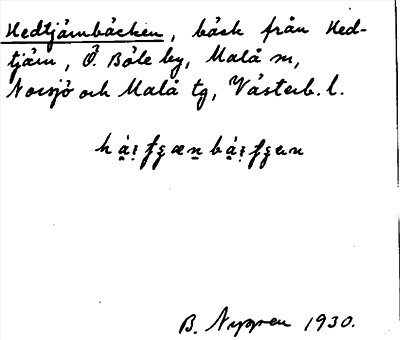 Hedtjärnbäcken, bäck från Hed-
tjärn, Ö. Böle by, Malå sn,
Norsjö och Malå tg, Västerb. l.
B. Nygren 1930.